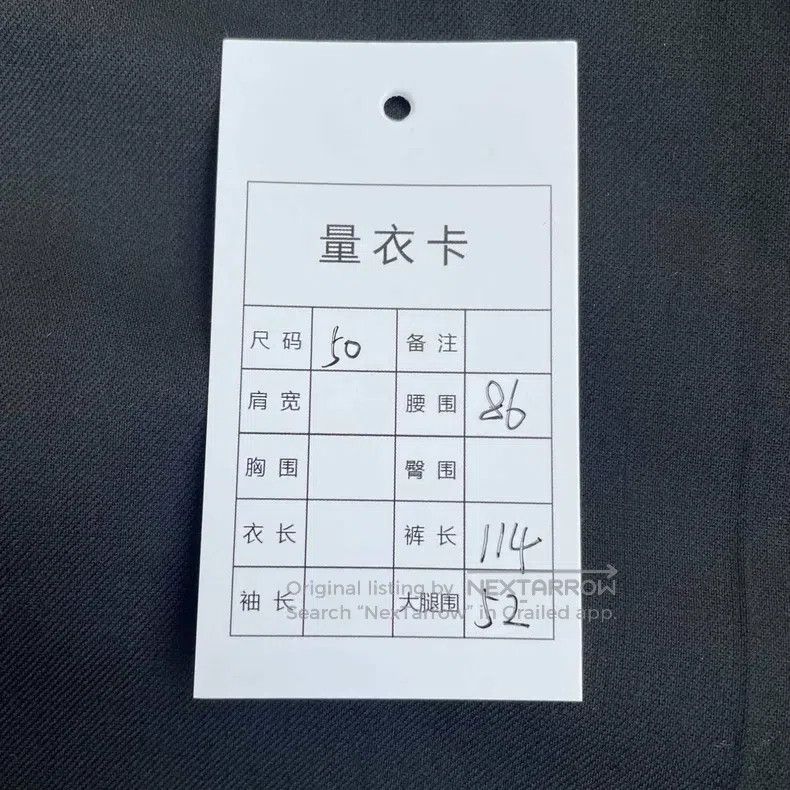 量衣卡
尺码 50 备注
肩宽 腰围 86
胸围 臀围
衣长 裤长 114
Original listing by NEXTARROW
袖长 大腿围 52
Search "NexTarrow" in Grailed app.